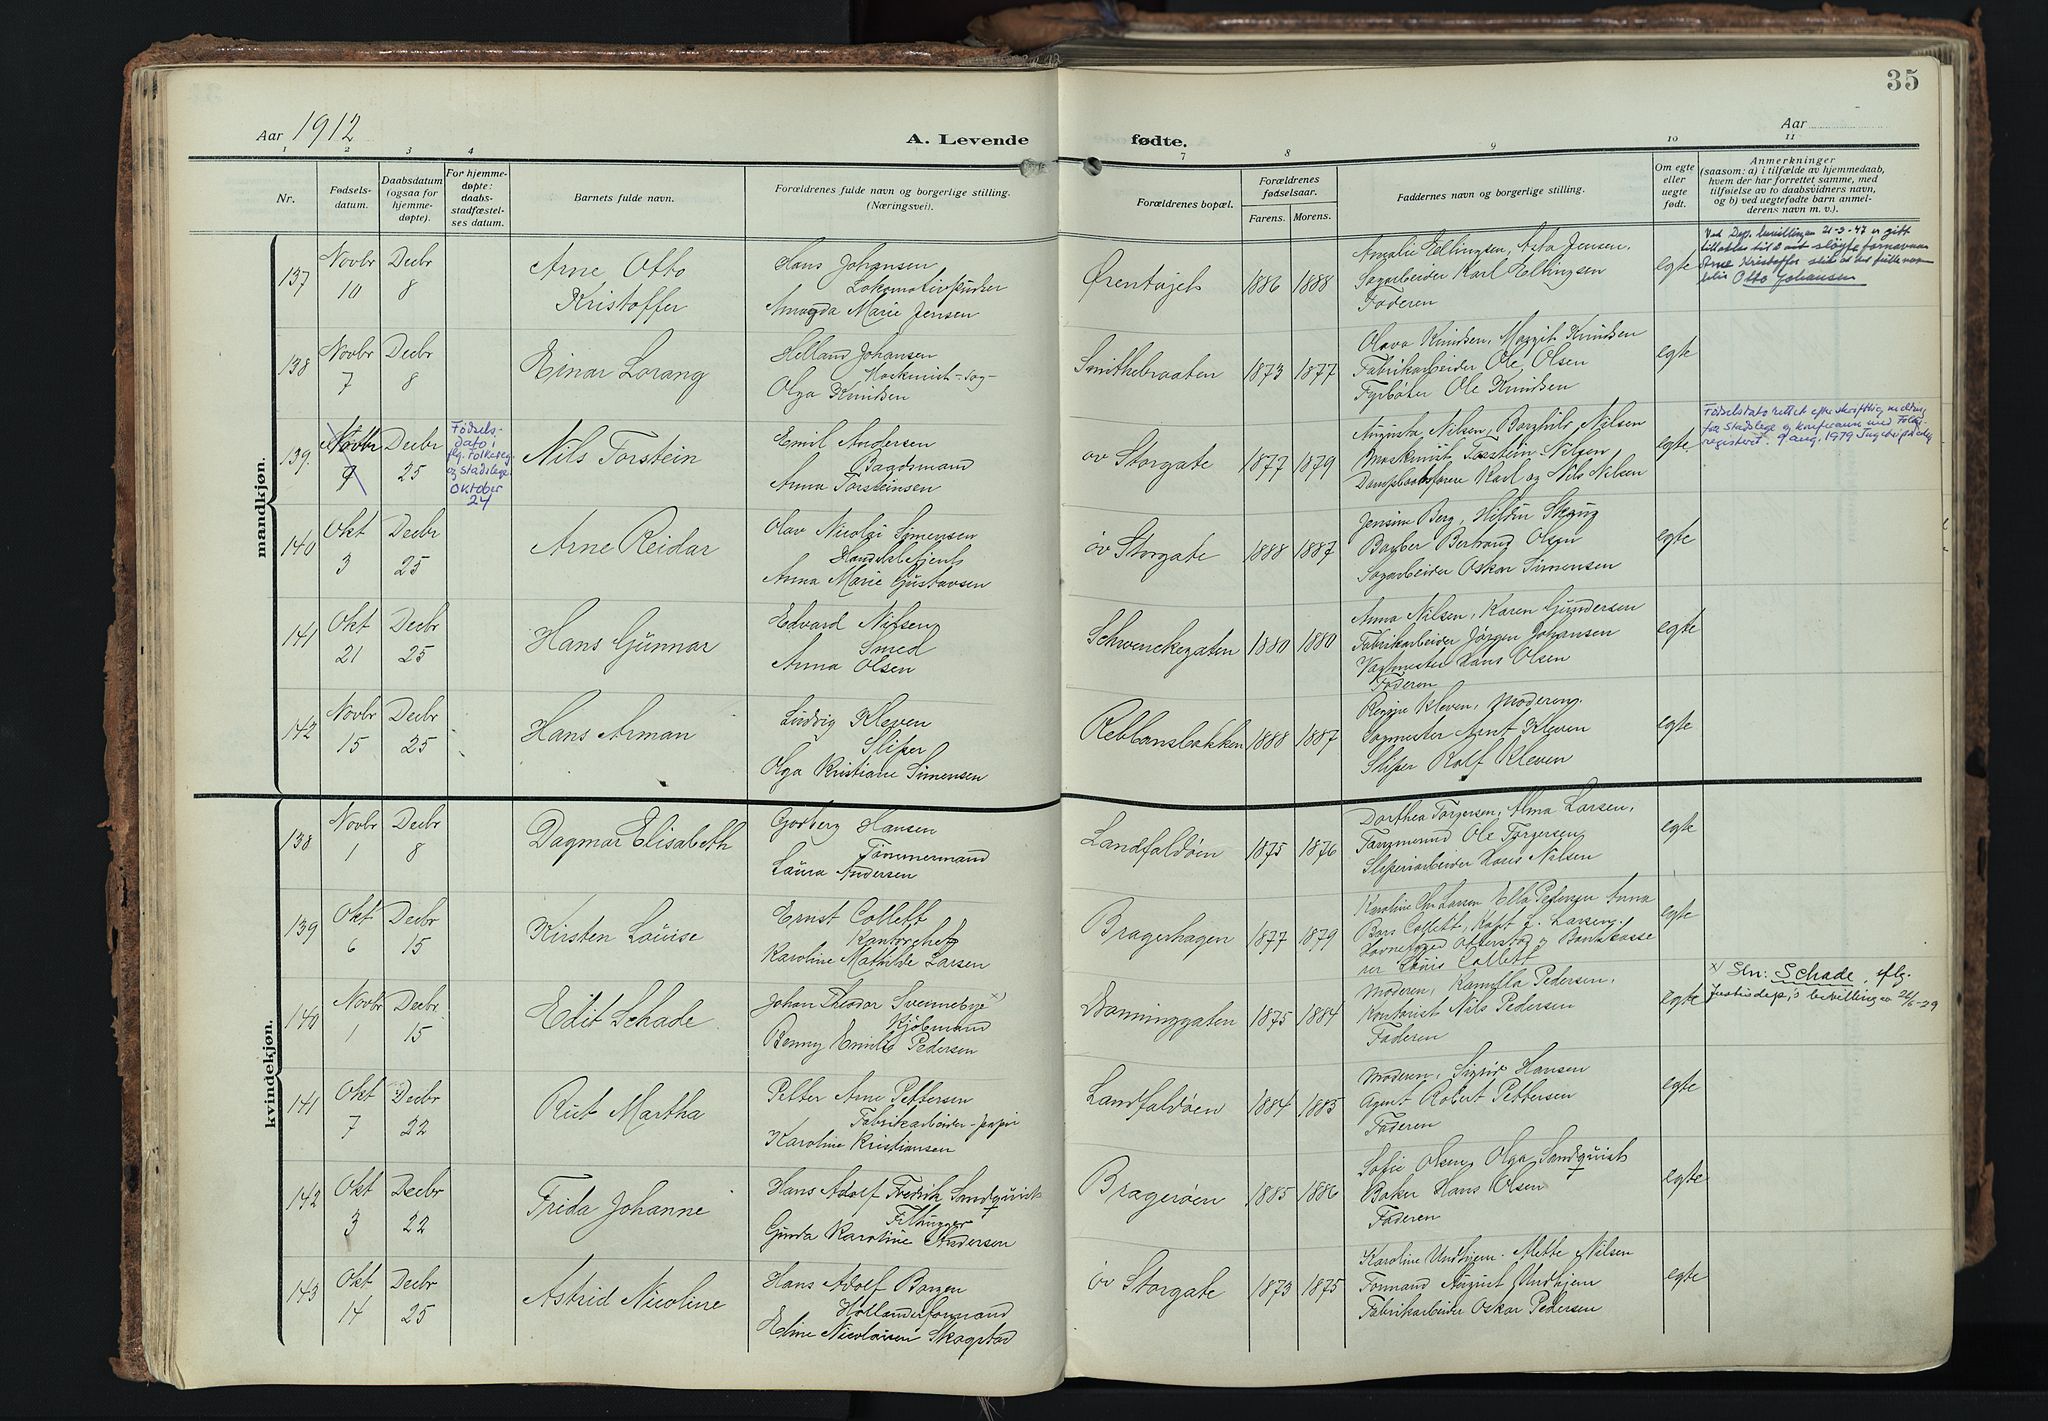 35
Aar 1912
A. Levende
fødte.
Aar
1
2
3
4
7
8
9
10
11
Nr.
Fødsels-
datum.
Daabsdatum
(ogsaa for
hjemme-
døpte).
For hjemme-
døpte:
daabs-
stadfæstel-
ses datum.
Barnets fulde navn.
Forældrenes fulde navn og borgerlige stilling.
(Næringsvei).
Forældrenes bopæl.
Forældrenes
fødselsaar.
Farens.
Morens.
Faddernes navn og borgerlige stilling.
Om egte
eller
uegte
født.
Anmerkninger
(saasom: a) i tilfælde av hjemmedaab,
hvem der har forrettet samme, med
tilføielse av to daabsvidners navn,
og b) ved uegtefødte barn anmel-
derens navn m. v.).
mandkjøn.
137
Novbr
10
Decbr
8
Arne Otto
Kristoffer
Hans Johansen
Lokomotivpudser
Amanda Marie Jensen
1886
1888
Amalie Ellingsen, Asta Jensen,
Sagarbeider Karl Ellingsen
Faderen
egte
Ved Dep. bevillingen 21-3-47 er gitt
Otto Johansen
138
Novbr
7
Decbr
8
Einar Lorang
Helland Johansen
Olga Knudsen
Smithebraaten
1873
1877
Olava Knudsen, Margit Knudsen
Fabrikarbeider Ole Olsen
Fyrbøter Ole Knudsen
egte
139
Novbr
9
Decbr
25
Fødsels-
dato i
flg. Folkereg.
og stadslege
Oktober
24
Nils Torstein
Emil Andersen
Baadsmand
Anna Torsteinsen
øv Storgate
1877
1879
Augusta Nilsen, Borghild Nilsen
Maskinist Torstein Nilsen,
Dampbaadsfører Karl og Nils Nilsen
egte
Fødselsdato rettet efter skriftlig meldin
fra Stadslege og konferanse med Folke
registeret. 9 aug. 1979
140
Okt
3
Decbr
25
Arne Reidar
Olav Nicolai Simensen
Handelsbetjent
Anna Marie Gustavsen
øv Storgate
1888
1887
Jensine Berg, Hilda Skaug
Barber Bertrand Olsen
Sagarbeider Oskar Simensen
egte
141
Okt
21
Decbr
25
Hans Gunnar
Edvard Nilsen
Smed
Anna Olsen
Schwenckegaten
1880
1880
Anna Nilsen, Karen Gundersen
Fabrikarbeider Jørgen Johansen
Vagtmester Hans Olsen
Faderen
egte
142
Novbr
15
Decbr
25
Hans Arman
Ludvig Kleven
Sliper
Olga Kristiane Simensen
Reblansbakken
1888
1887
Kleven, Moderen
Sagmester Arnt Kleven
Sliper Rolf Kleven
egte
kvindekjøn.
138
Novbr
1
Decbr
8
Dagmar Elisabeth
Godberg Hansen
Tømmermand
Laura Andersen
Landfaldøen
1875
1876
Dorthea Torgersen, Alma Larsen,
Ole Torgersen,
Sliperiarbeider Hans Nilsen
egte
139
Okt
6
Decbr
15
Kirsten Louise
Ernst Collett
Kontorchef
Karoline Mathilde Larsen
Bragerhagen
1877
1879
Karoline Chr Larsen Ella Pedersen Anna
Bors Collett, Kapt L. Larsen,
Havnefoged Otterstad og Bankkasse
rer Louis Collett
egte
140
Novbr
1
Decbr
15
Edit Schade
Johan Theodor Svennebye x)
Kjøbmand
Benny Emilie Pedersen
Dammenggaten
1875
1884
Moderen, Kamilla Pedersen,
Kontorist Nils Pedersen
Faderen
egte
x) Sln: Schade, iflg.
Justisdep.s bevilling av 26/6-29
141
Okt
7
Decbr
22
Rut Martha
Petter Arne Pettersen
Fabrikarbeider - papir
Karoline Kristiansen
Landfaldøen
1884
1885
Moderen, Sigrid Hansen
Agent Robert Pettersen
Faderen
egte
142
Okt
3
Decbr
22
Frida Johanne
Hans Adolf Fredrik Sandquist
Filhugger
Gunda Karoline Andersen
Bragerøen
1885
1886
Sofie Olsen, Olga Sandquist
Baker Hans Olsen
Faderen
egte
143
Okt
14
Decbr
25
Astrid Nicoline
Hans Adolf Borgen
Hollenderformand
Eline Nicolaisen Skagstad
øv Storgate
1873
1875
Karoline Undhjem. Mette Nilsen
Formand August Undhjem
Fabrikarbeider Oskar Pedersen
egte